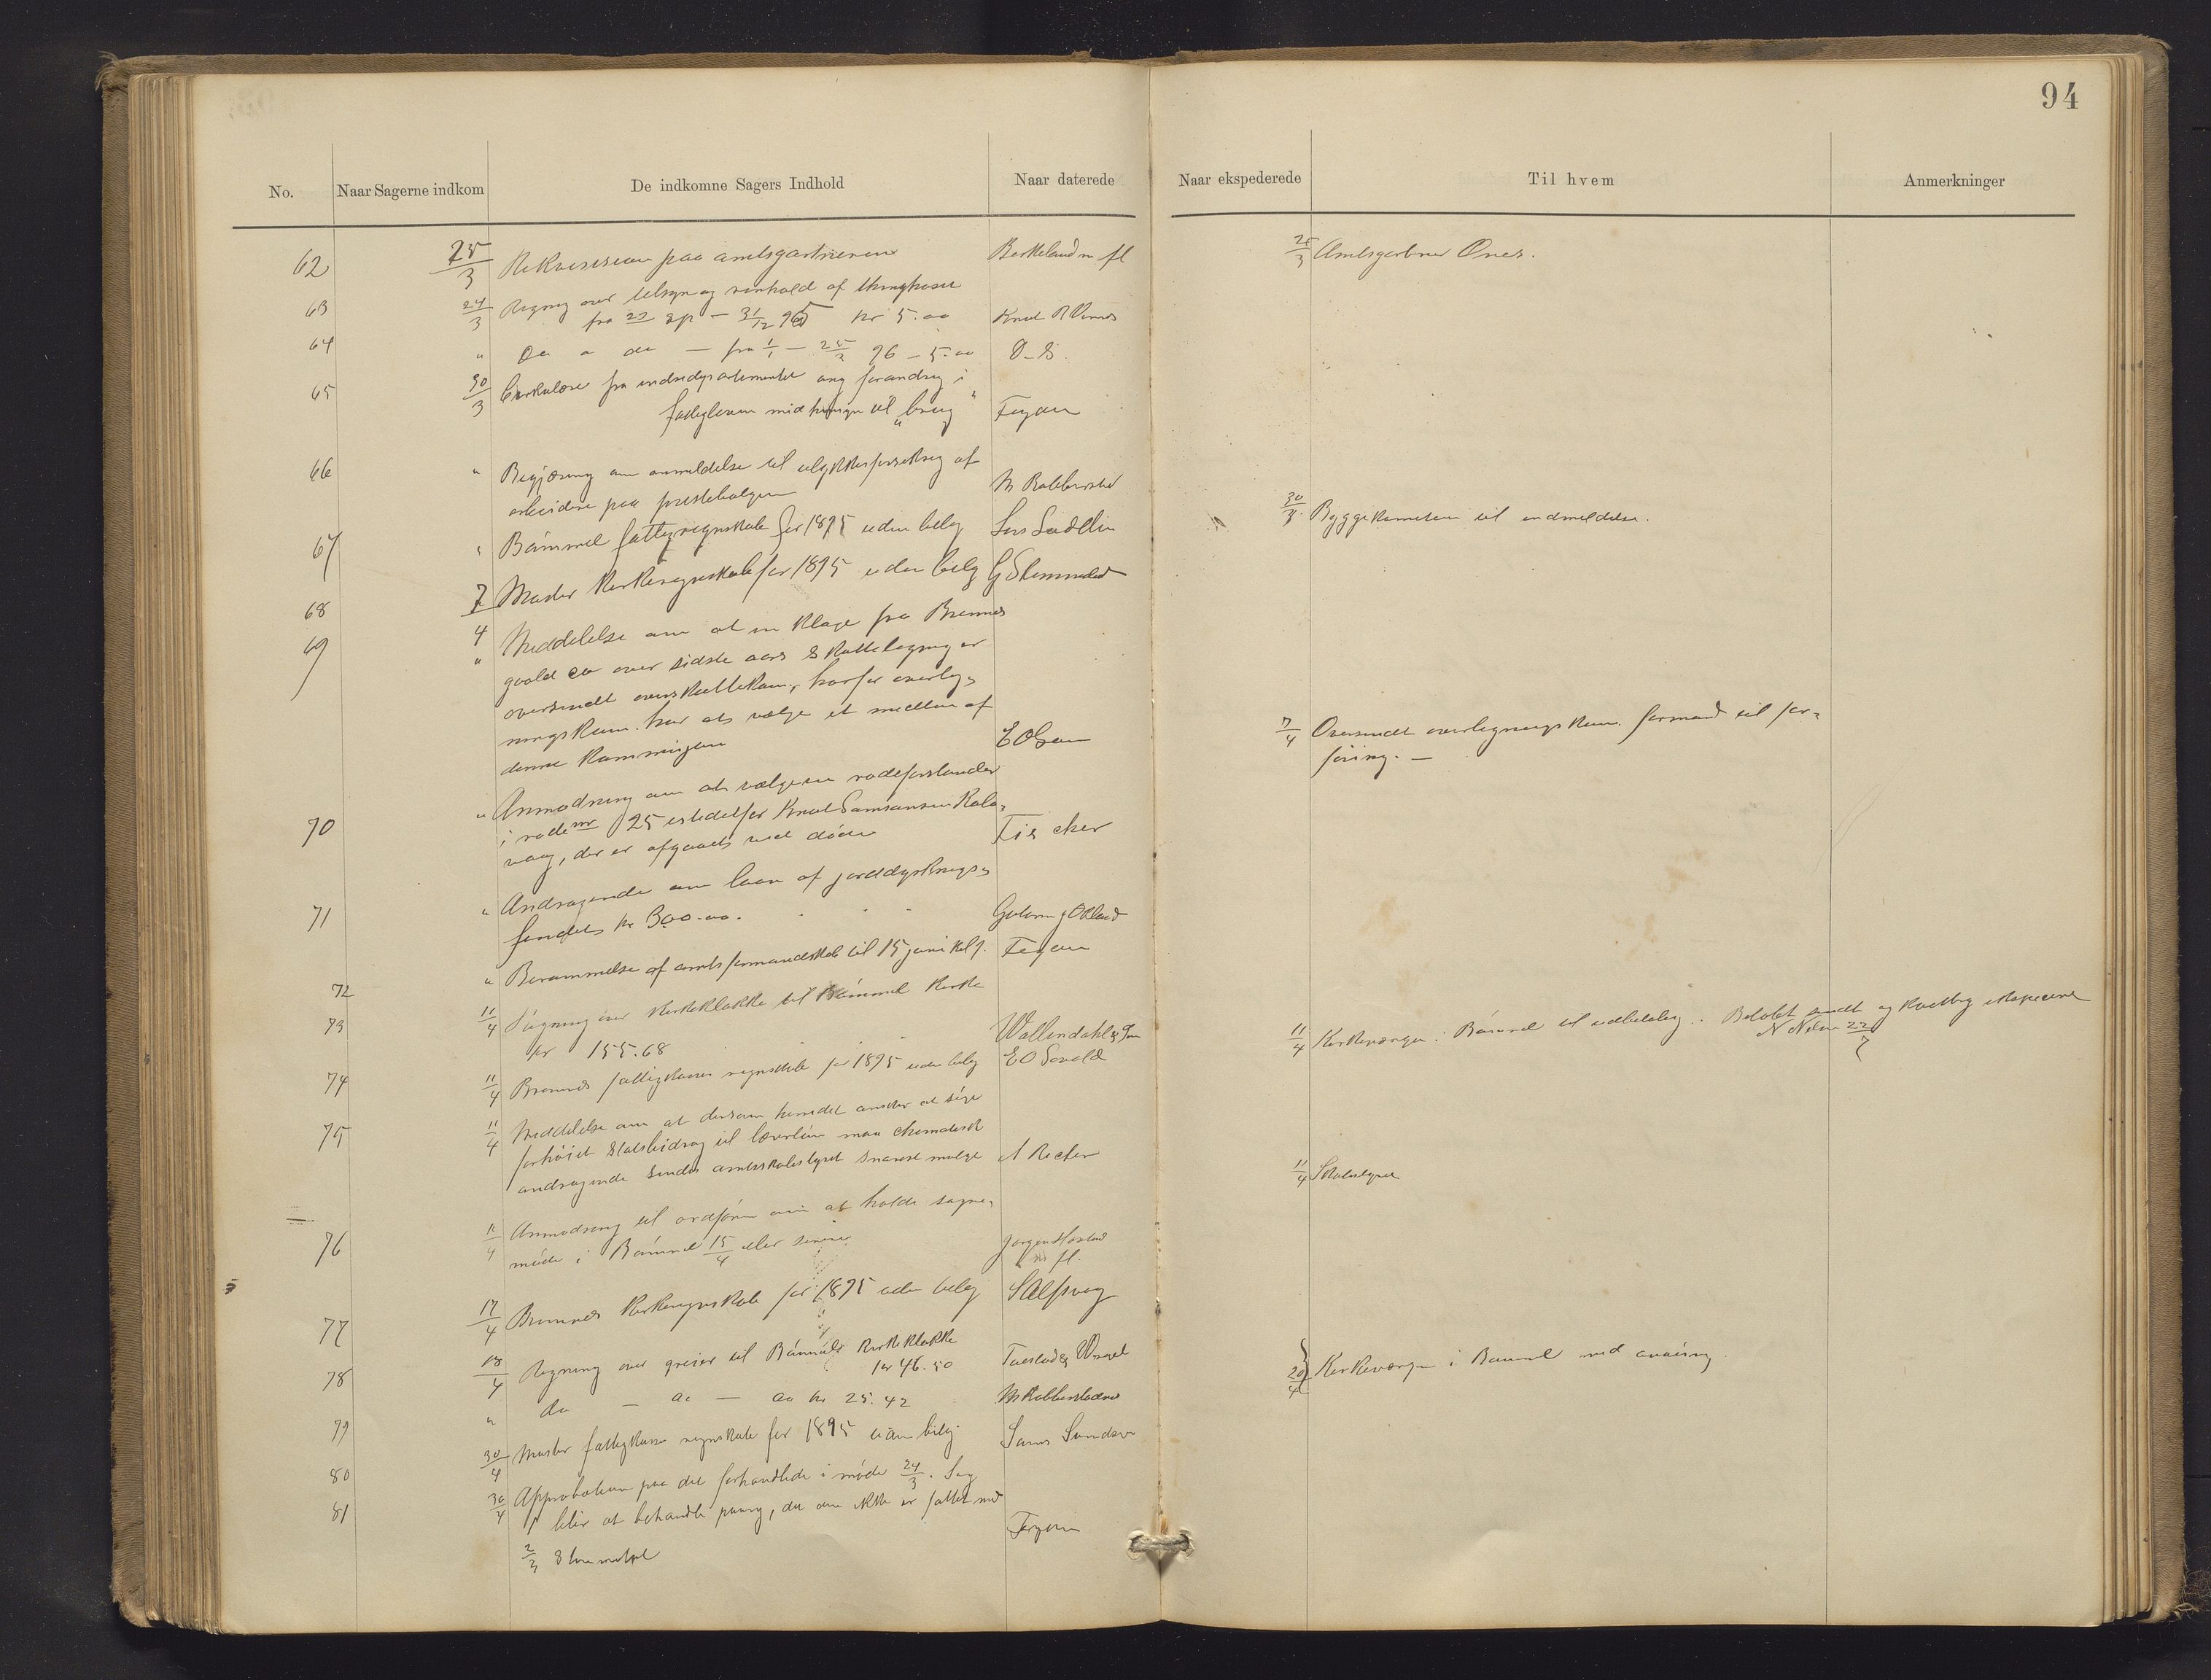 94
No. Naar Sagerne indkom De indkomne Sagers Indhold Naar daterede Naar ekspederede Til hvem Anmerkninger
62 25/3 Rekvisision paa amtsgartneren Berkeland m fl 25/3 Amtsgartner Ones.
63 24/3 Regning over tilsyn og renhold af thinghuset
fra 27 sp - 31/12 95 kr 5.00 Knut R
64 " Do " do - fra 1/1 - 25/3 96 - 5.00 D-S.
65 30/3 Cirkulære fra indredepartementet ang forandrig i
fattigloven med hensyn til "brug" Fegan
66 " Begjæring om anmeldelse til ulykkesforsikrig af
arbeidere paa prestebolgen M Robberstad 30/3 Byggekomiteen til indmeldelse.
67 " Bømmel fattigregnskab for 1895 uden bilag
68 7/4 Moster kirkeregnskab for 1895 uden bilg
69 " Meddelelse om at en klage fra Bremnes
over sidste aars skatteligning er
oversendt overskattekom, hvorfor overlig-
ningskom. har at vælge et medlem af
denne kommisjon E Olsen 7/4 Oversendt overligningskom. formand til for-
føining. -
70 " Anmodning om at vælge en rodeforstander
i rode nr 25 istedetfor Knut Samsonsen Kala-
vaag, der er afgaaet ved døden Fischer
71 " Andragende om laan af jorddyrknings-
fondet kr 300.00. Økland
72 " Berammelse af amtsformandskab til 15 juni kl 9. Fegan
73 11/4 Regning over kirkeklokke til Bømmel kirke
kr 155.68 Wallendahl & Søn 11/4 Kirkevergen i Bømmel til udbetaling. Beløbet sendt og kvitteg
22/7
74 11/4 Bremnes fattigkasses regnskab for 1895 uden bilag E O Sovold
75 11/4 Meddelelse om at dersom herredet ønsker at søge
forhøiet statsbidrag til lærerløn maa
andragende sendes amtsskolestyret snarest mulge A Recter 11/4 Skolestyret
76 11/4 Anmodning til ordføren om at holde sogne-
møde i Bømmel 15/4 eller senere Jørgen
m fl.
77 17/4 Bremnes kirkeregnskab for 1895 uden bilag S Alfsvog
78 18/4 Regning over greier til Bømmels kirkeklokke
kr 46.50 20/4 Kirkevergen i Bømmel med anvisng
79 " do - do - do kr 25.42 M Robberstad
80 30/4 Moster fattigkasse regnskab for 1895 uden bilag
81 30/4 Approbation paa det forhandlede i møde 24/3. Sag
blir at behandle paany, da den ikke er fattet med
2/3 stemmetal Fegan